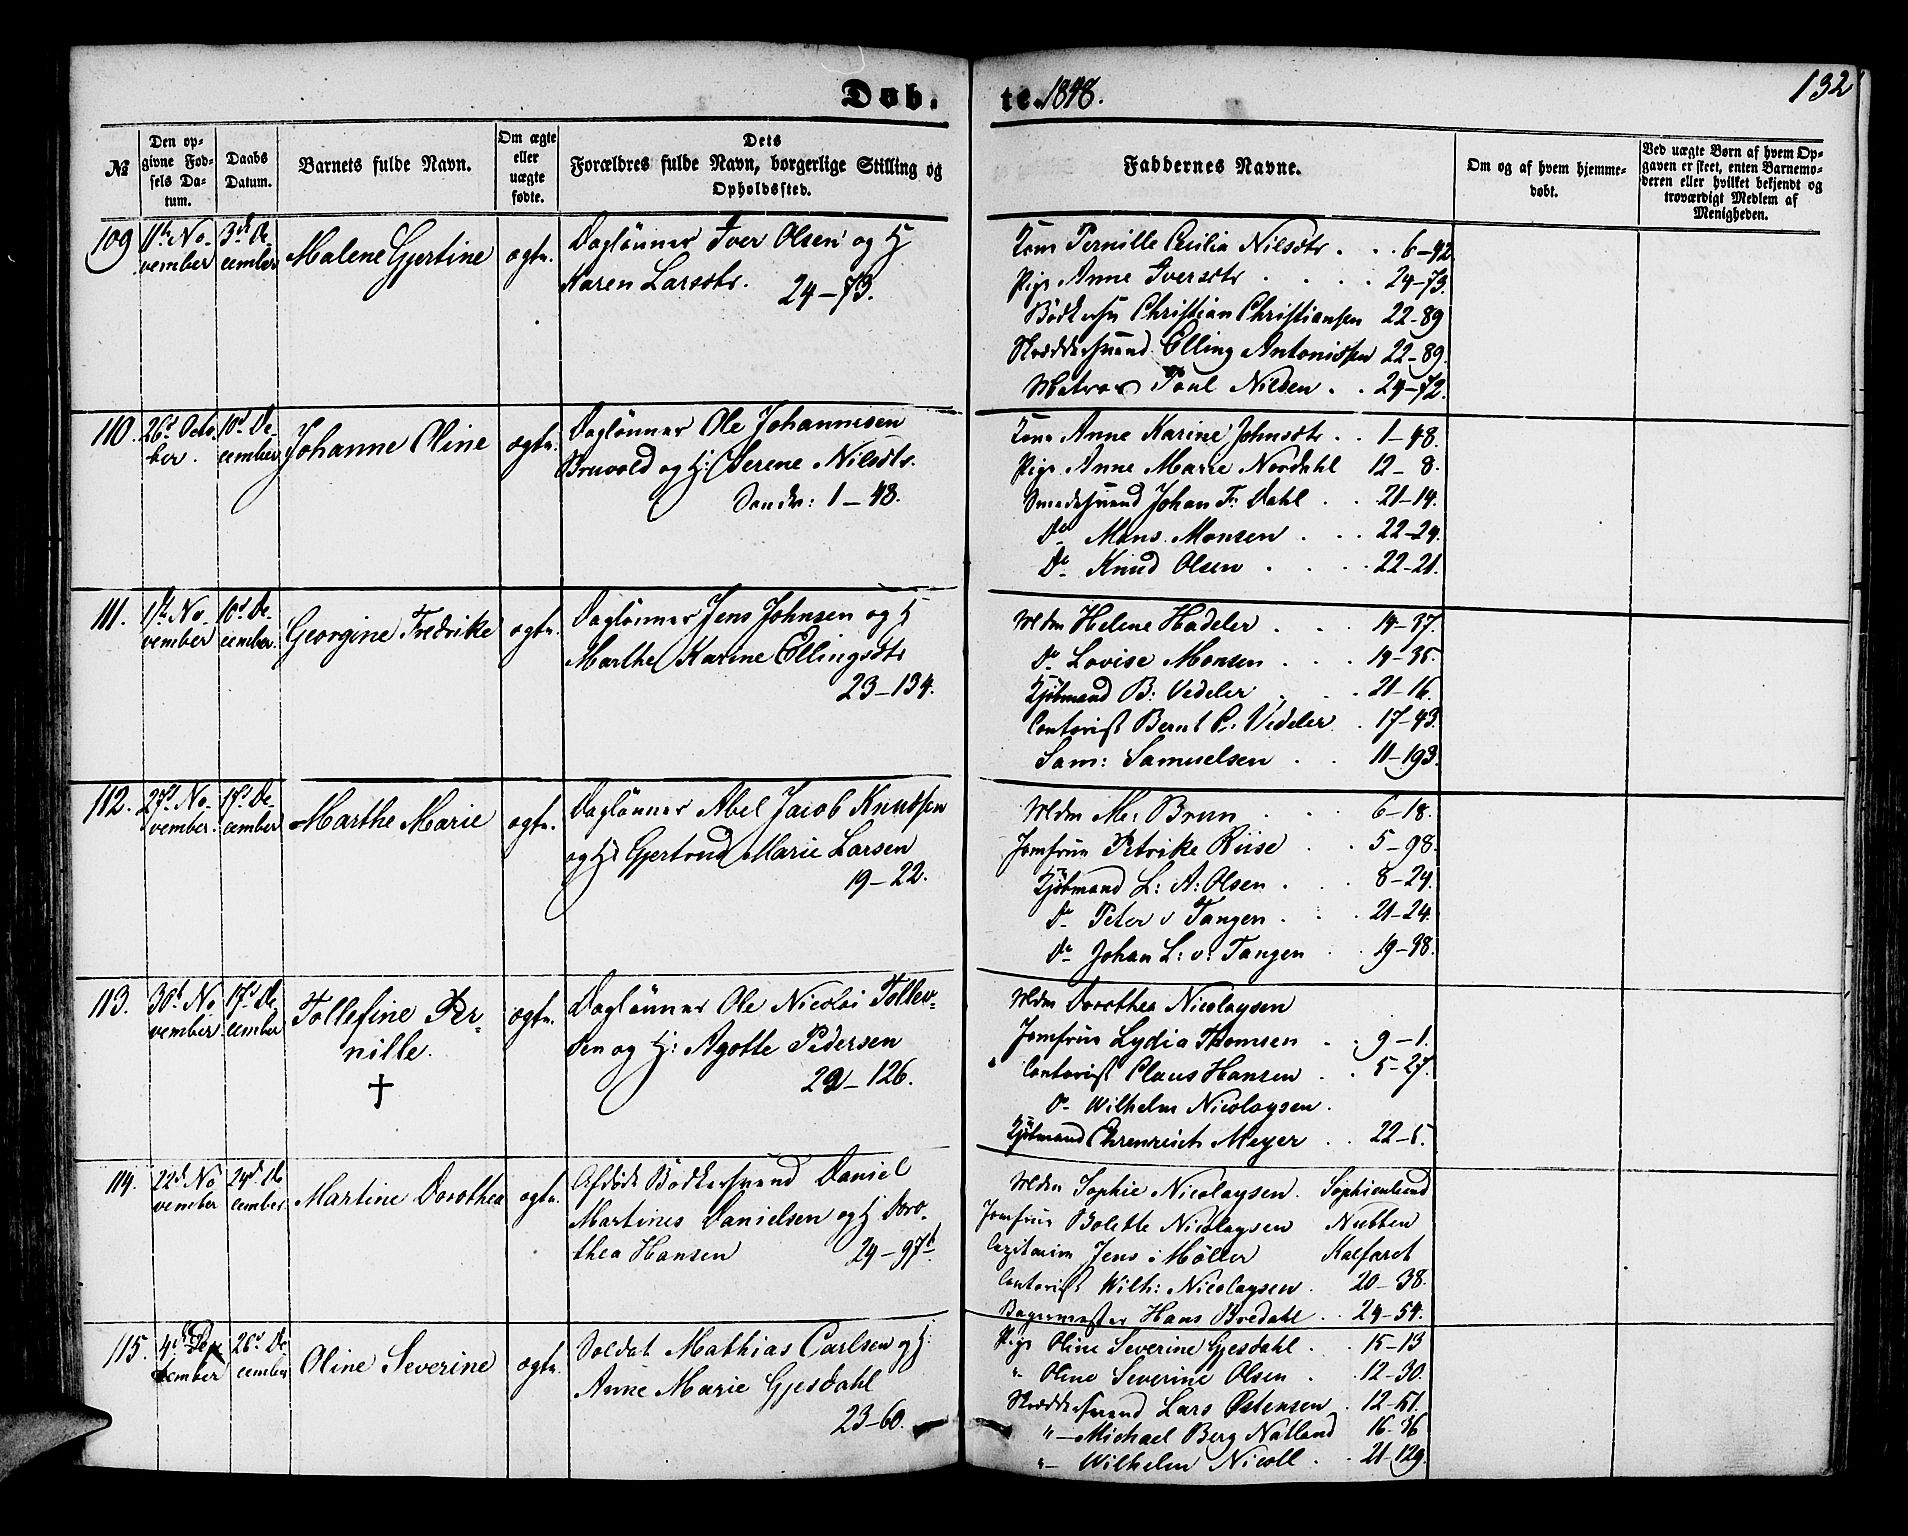 Døb.
te 1848.
132
№
Den opgivne Fødsels Datum.
Daabs Datum.
Barnets fulde Navn.
Om ægte eller uægte fødte.
Dets
Forældres fulde Navn, borgerlige Stilling og
Opholdssted.
Faddernes Navne.
Om og af hvem hjemmedøbt.
Ved uægte Børn af hvem Opgaven er skeet, enten Barnemoderen eller hvilket bekjendt og troværdigt Medlem af Menigheden.
109
November
3de December
Malene Gjertine
ægte.
Daglønner Iver Olsen og H
Karen Larsdtr.
24-73.
Kone Pernille Cecilia Nilsdtr. 6-42
Pige Anne Iversdtr 24-73.
Bødkersv Christian Christiansen 22-89
Skreddersvend Elling Antonissen 22-89.
Matros Poul Nilsen 24-72.
110.
26d October.
10d December
Johanne Oline
ægte.
Daglønner Ole Johannesen
Bruvold og H: Serene Nilsdtr.
Sandv: 1-48.
Kone Anne Karine Johnsdtr 1-48.
Pige Anne Marie Nordahl 12-8.
Smedesvend Johan F: Dahl 21-14.
Do Mons Monsen 22-24.
Do Knud Olsen 22-21.
111.
November
10d December
Georgine Fredrike
ægte.
Daglønner Jens Johnsen og H
Marthe Karine Ellingsdtr
23-134.
Mdm Helene Hadeler 14-37.
Do Lovise Monsen 19-35.
Kjøbmand B: Vedeler 21-16.
Contorist Bernt C. Vedeler 17-43.
Sam: Samuelsen 11-193.
112.
27d November.
17d December
Marthe Marie
ægte.
Daglønner Abel Jacob Knudsen
og H: Gjertrud Marie Larsen
19-22.
Mdm M: Brun 6-18.
Jomfrue Petrike Riise 5-98.
Kjøbmand L: A: Olsen 8-24.
Do Peter v Tangen 21-24.
Do Johan L: v: Tangen 19-38.
113.
30d November
17d December
Tollefine Pernille.
†
ægte.
Daglønner Ole Nicolai Tollevsen og H: Agotte Pedersen
22-126.
Mdm Dorothea Nicolaysen
Jomfrue Lydia Thomsen 9-1.
Contorist Claus Hansen 5-27.
Do Wilhelm Nicolaysen.
Kjøbmand Ehrenreich Meyer 22-5.
114.
22d November
24d December
Martine Dorothea
ægte.
Afdøde Bødkersvend Daniel
Martines Danielsen og H Dorothea Hansen
24-97b.
Mdm Sophie Nicolaysen. Sophienlund
Jomfrue Bolette Nicolaysen Nubben
Capitain Jens Møller Kalfaret
Contorist Wilh: Nicolaysen. 20-38.
Bagermester Hans Bredahl 24-54.
115.
26d December
Oline Severine
ægte.
Soldat Mathias Carlsen og H:
Anne Marie Gjesdahl
23-60.
Pige Oline Severine Gjesdahl 15-13
" Oline Severine Olsen 12-30.
Skreddersvend Lars Østensen 12-51.
"- Michael Berg Natland 16-36
"- Wilhelm Nicoll 21-129.